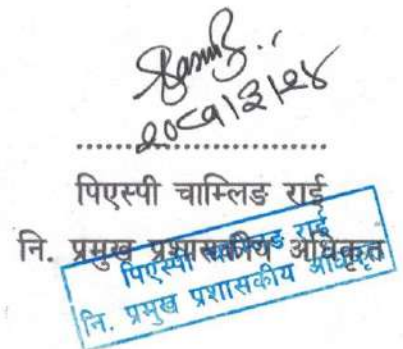 २०८१।३।२४
........................................
पिएस्पी चाम्लिङ राई
नि. प्रमुख प्रशासकीय अधिकृत
पिएस्पी चाम्लिङ राई
नि. प्रमुख प्रशासकीय अधिकृत